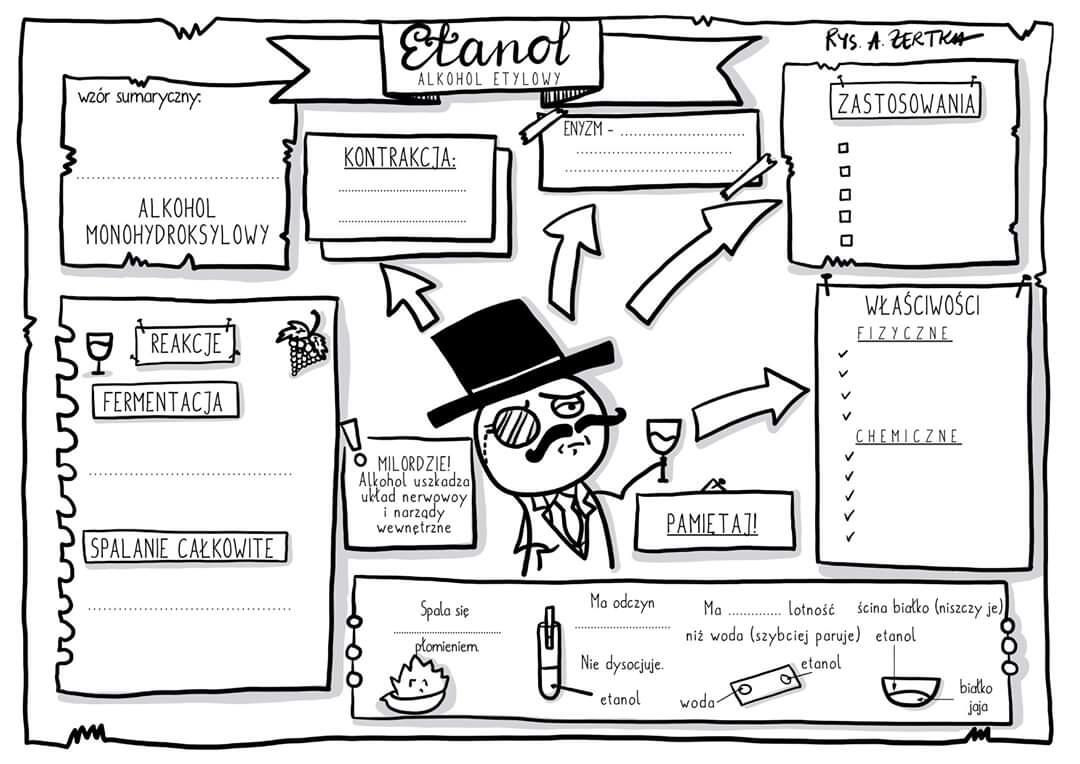 Etanol
ALKOHOL ETYLOWY
RYS. A. ŻERTKA
wzór sumaryczny:
ALKOHOL
MONOHYDROKSYLOWY
KONTRAKCJA:
ENYZM - ....................
ZASTOSOWANIA
REAKCJE
FERMENTACJA
SPALANIE CAŁKOWITE
MILORDZIE!
Alkohol uszkadza
układ nerwpwoy
i narządy
wewnętrzne
PAMIĘTAJ!
WŁAŚCIWOŚCI
FIZYCZNE
CHEMICZNE
Spala się
płomieniem.
Ma odczyn
Nie dysocjuje.
etanol
Ma ............. lotność
niż woda (szybciej paruje)
etanol
woda
ścina białko (niszczy je)
etanol
białko
jaja